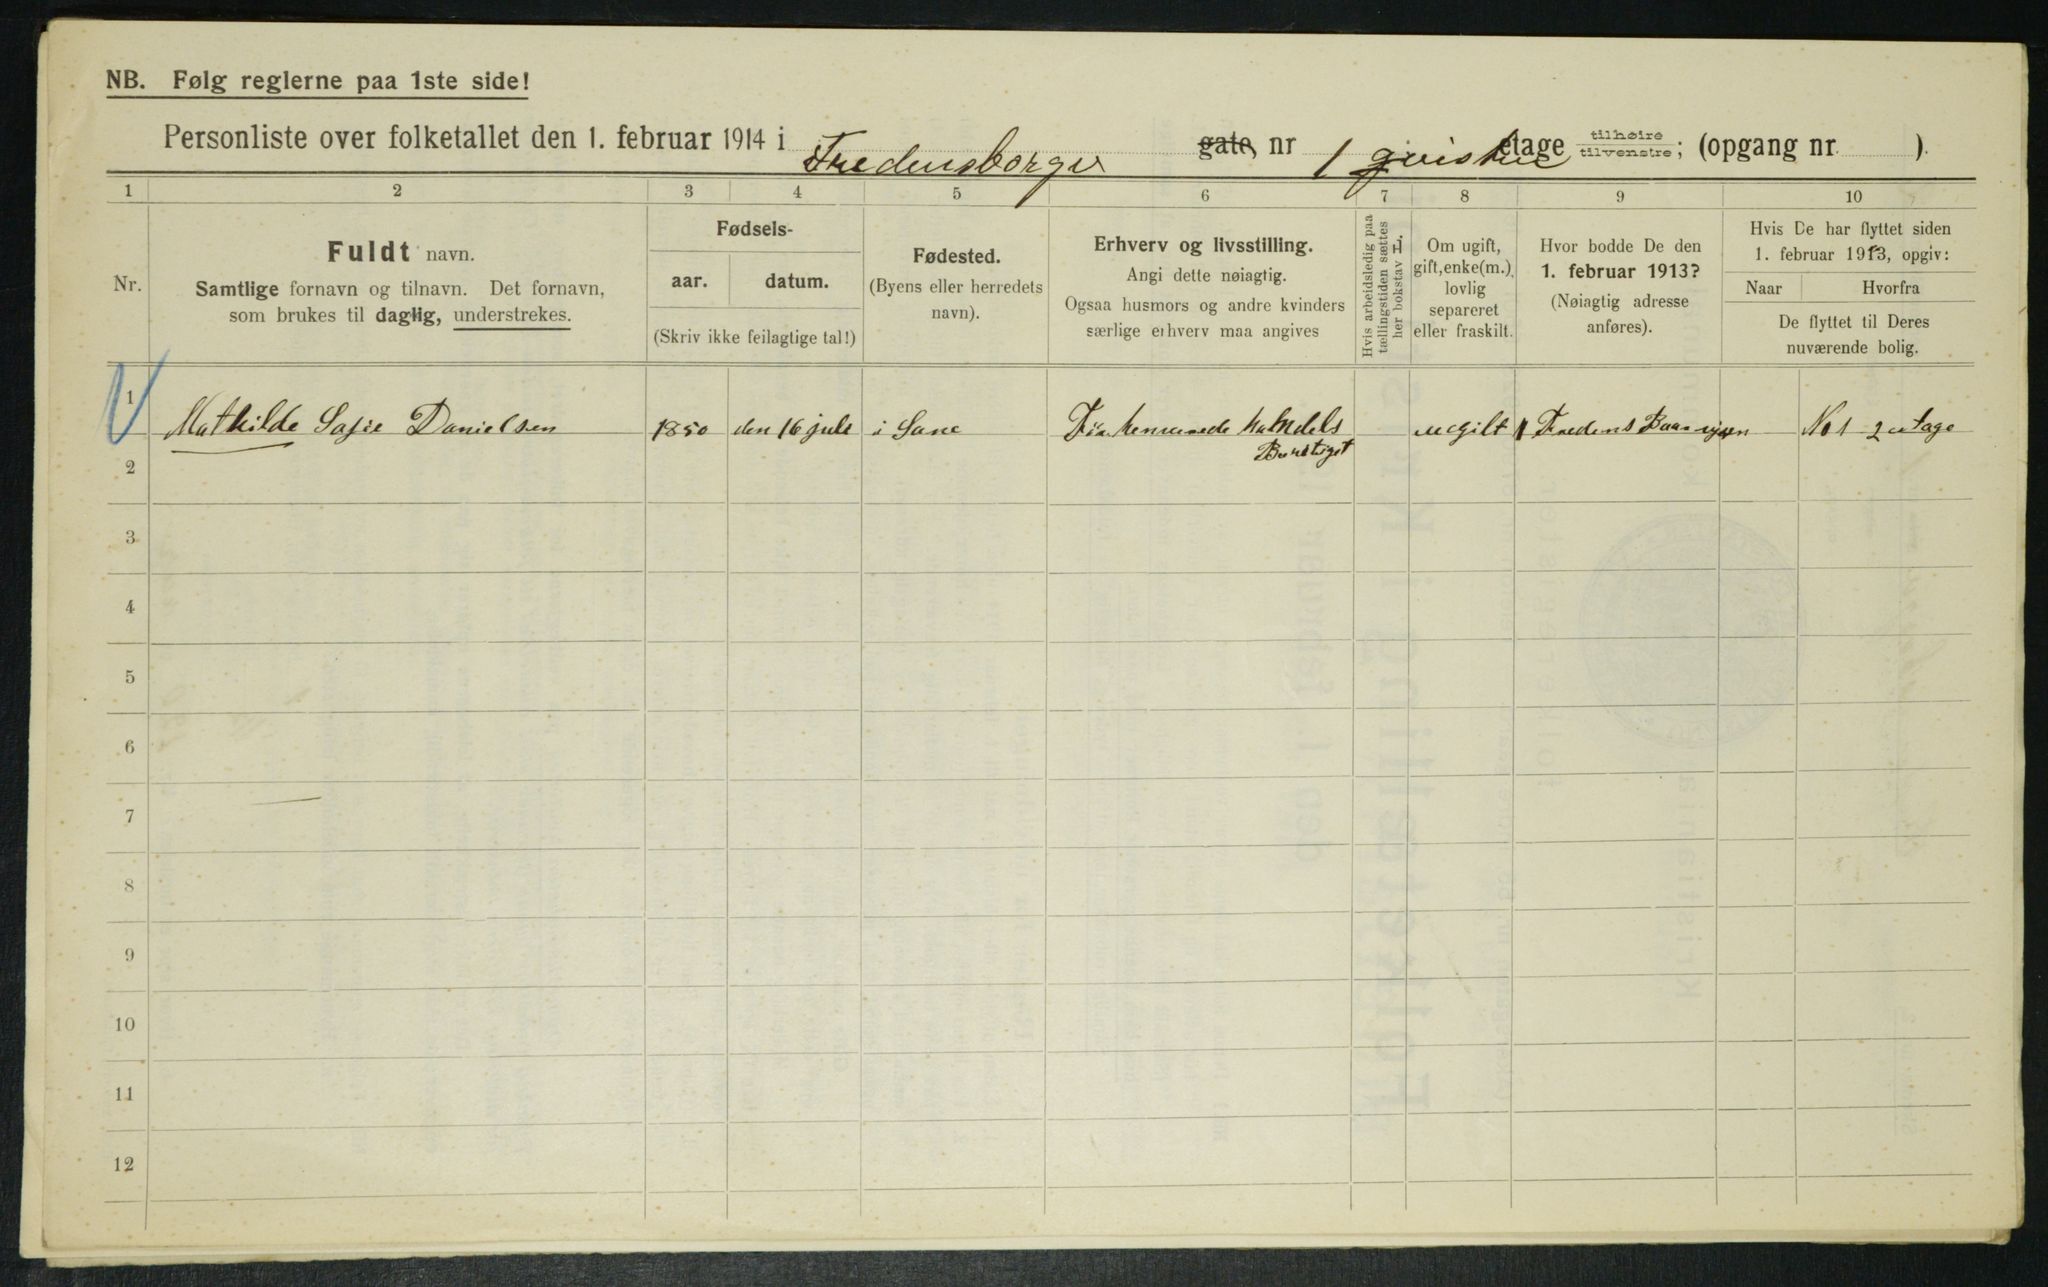 NB. Følg reglerne paa 1ste side!
Personliste over folketallet den 1. februar 1914 i Fredensborgv gate, nr 1 qvisten etage tilhøire tilvenstre; (opgang nr ).
1 2 3 4 5 6 7 8 9 10
Nr.
Fuldt navn.
Samtlige fornavn og tilnavn. Det fornavn,
som brukes til daglig, understrekes.
Fødsels-
aar. datum.
(Skriv ikke feilagtige tal!)
Fødested.
(Byens eller herredets
navn).
Erhverv og livsstilling.
Angi dette nøiagtig.
Ogsaa husmors og andre kvinders
særlige erhverv maa angives
Hvis arbeidsledig paa
tællingstiden sættes
her bokstav L.
Om ugift,
gift, enke(m.),
lovlig
separeret
eller fraskilt.
Hvor bodde De den
1. februar 1913?
(Nøiagtig adresse
anføres).
Hvis De har flyttet siden
1. februar 1913, opgiv:
Naar Hvorfra
De flyttet til Deres
nuværende bolig.
1 Mathilde Sofie Danielsen 1850 den 16 juli i ugift No 1 2 etage
2
3
4
5
6
7
8
9
10
11
12